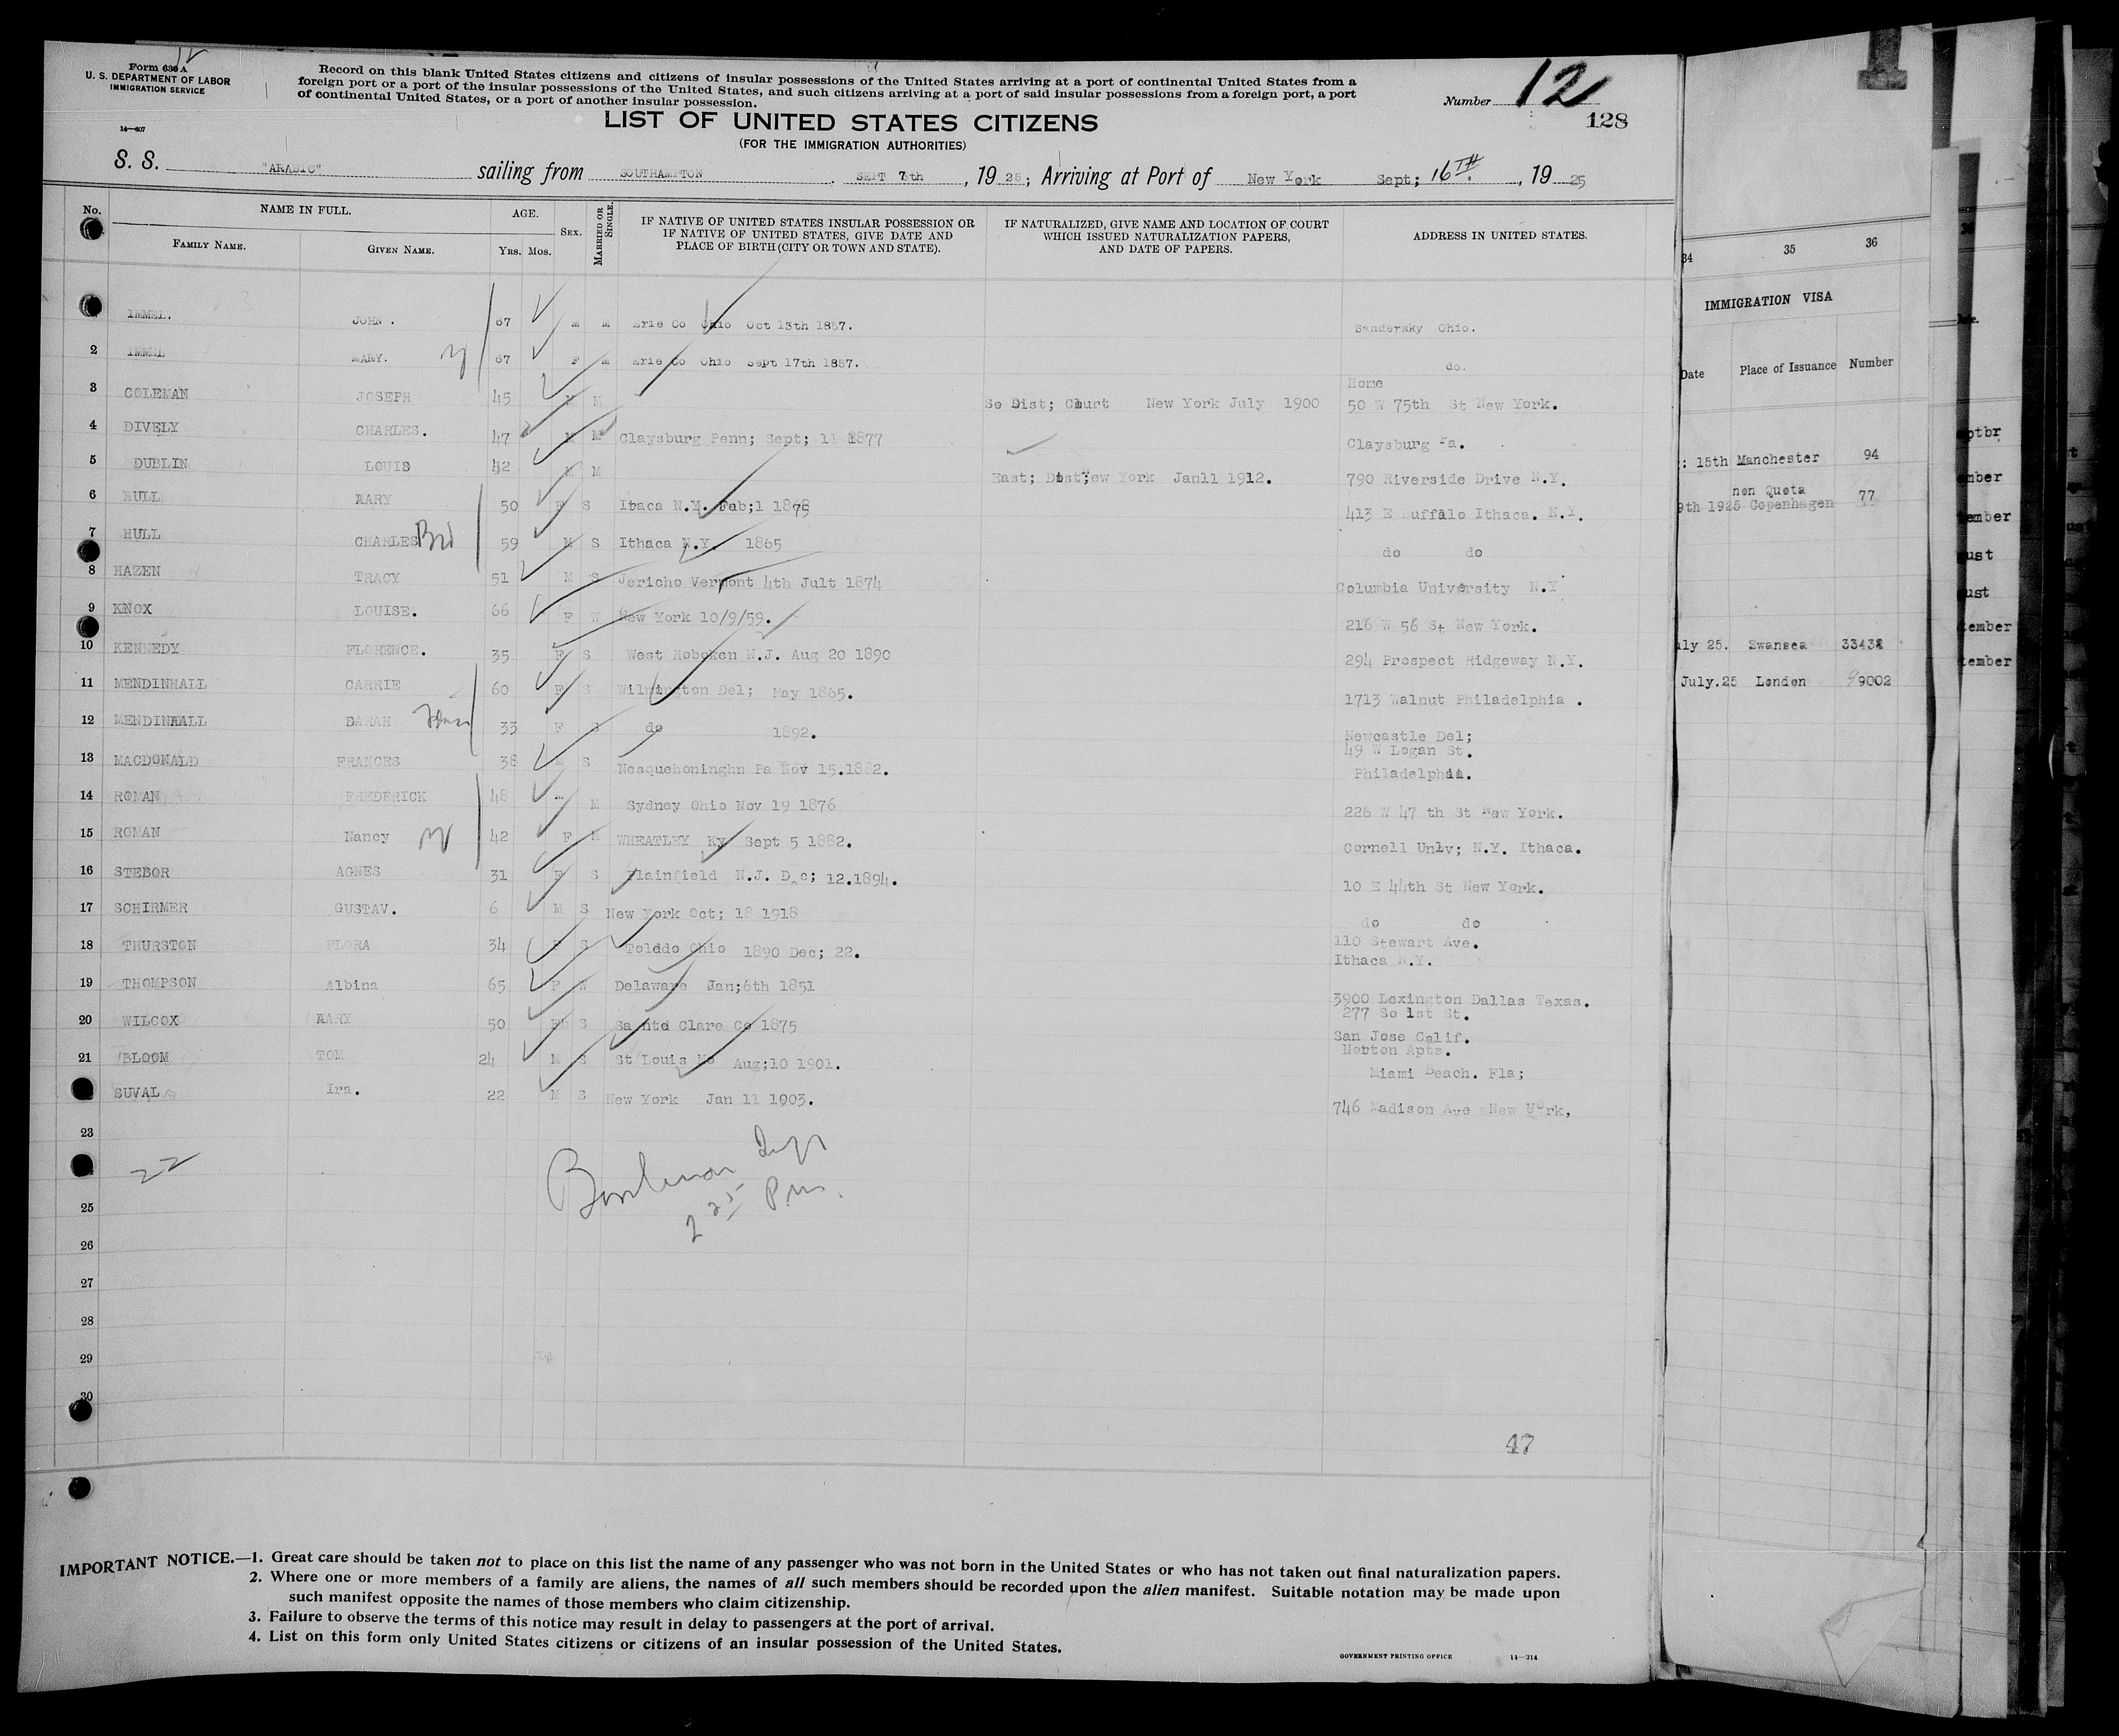 Form 630 A
U. S. DEPARTMENT OF LABOR
IMMIGRATION SERVICE
14—607
Record on this blank United States citizens and citizens of insular possessions of the United States arriving at a port of continental United States from a
foreign port or a port of the insular possessions of the United States, and such citizens arriving at a port of said insular possessions from a foreign port, a port
of continental United States, or a port of another insular possession.
Number 12
128
LIST OF UNITED STATES CITIZENS
(FOR THE IMMIGRATION AUTHORITIES)
S. S. "ARABIC" sailing from SOUTHAMPTON, SEPT 7th, 19 25; Arriving at Port of New York Sept; 16TH, 19 25
No. NAME IN FULL. AGE. SEX. MARRIED OR SINGLE. IF NATIVE OF UNITED STATES INSULAR POSSESSION OR IF NATIVE OF UNITED STATES, GIVE DATE AND PLACE OF BIRTH (CITY OR TOWN AND STATE). IF NATURALIZED, GIVE NAME AND LOCATION OF COURT WHICH ISSUED NATURALIZATION PAPERS, AND DATE OF PAPERS. ADDRESS IN UNITED STATES.
FAMILY NAME. GIVEN NAME. YRS. MOS.
IMMEL. JOHN. 67 M M Erie Co Ohio Oct 13th 1857. Sandersky Ohio.
2 IMMEL MARY. 67 F M Erie Co Ohio Sept 17th 1857. do.
3 COLEMAN JOSEPH 45 M M So Dist; Court New York July 1900 Home 50 W 75th St New York.
4 DIVELY CHARLES. 47 M M Claysburg Penn; Sept; 11 1877 Claysburg Pa.
5 DUBLIN LOUIS 42 M M East; Dist; New York Jan11 1912. 790 Riverside Drive N.Y.
6 HULL MARY 50 F S Itaca N.Y. Feb;1 1875 413 E Buffalo Ithaca. N.Y.
7 HULL CHARLES 59 M S Ithaca N.Y. 1865 do do
8 HAZEN TRACY 51 M S Jericho Vermont 4th Jult 1874 Columbia University N.Y
9 KNOX LOUISE. 66 F W New York 10/9/59. 216 W 56 St New York.
10 KENNEDY FLORENCE. 35 F S West Hoboken N.J. Aug 20 1890 294 Prospect Ridgeway N.Y.
11 MENDINHALL CARRIE 60 F S Wilmington Del; May 1865. 1713 Walnut Philadelphia.
12 MENDINHALL DARAH 33 F S do 1892. Newcastle Del;
13 MACDONALD FRANCES 38 S Nesquehoninghn Pa Nov 15.1882. 49 W Logan St. Philadelphia.
14 ROMAN FREDERICK 48 M Sydney Ohio Nov 19 1876 226 W 47 th St New York.
15 ROMAN Nancy 42 F M WHEATLEY Ky Sept 5 1882. Cornell Univ; N.Y. Ithaca.
16 STEBOR AGNES 31 F S Plainfield N.J. Dec; 12.1894. 10 E 44th St New York.
17 SCHIRMER GUSTAV. 6 M S New York Oct; 18 1918 do do
18 THURSTON FLORA 34 F S Toledo Ohio 1890 Dec; 22. 110 Stewart Ave. Ithaca N.Y.
19 THOMPSON Albina 65 F W Delaware Jan;6th 1851 3900 Lexington Dallas Texas.
20 WILCOX MARY 50 F S Santa Clare Co 1875 277 So 1st St. San Jose Calif.
21 BLOOM TOM 24 M S St Louis Mo Aug;10 1901. Nobton Apts. Miami Beach. Fla;
SUVAL Ira. 22 M S New York Jan 11 1903. 746 Madison Ave New York,
23
22
2 25 Pm.
25
26
27
28
29
30
47
IMPORTANT NOTICE.—1. Great care should be taken not to place on this list the name of any passenger who was not born in the United States or who has not taken out final naturalization papers.
2. Where one or more members of a family are aliens, the names of all such members should be recorded upon the alien manifest. Suitable notation may be made upon
such manifest opposite the names of those members who claim citizenship.
3. Failure to observe the terms of this notice may result in delay to passengers at the port of arrival.
4. List on this form only United States citizens or citizens of an insular possession of the United States.
GOVERNMENT PRINTING OFFICE 14—214
34 35 36
IMMIGRATION VISA
Date Place of Issuance Number
: 15th Manchester 94
non Quota
9th 1925 Copenhagen 77
uly 25. Swansea 33431
July.25 London 99002